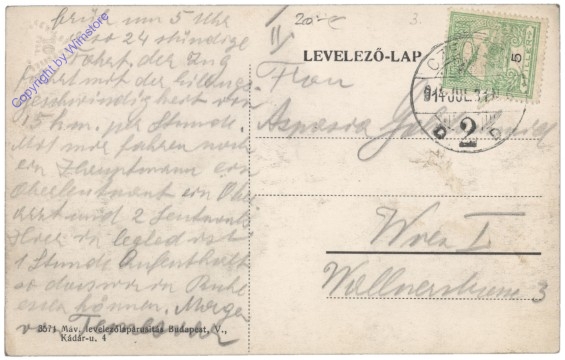 früh um 5 Uhr
also 24 stündige
Fahrt, der Zug
fährt mit der
Geschwindigkeit von
15 km. per Stunde.
Mit mir fahren noch
ein Hauptmann ein
Oberleutnant ein Ober
arzt und 2 Leutnants
Hier in Cegled ist
1 Stunde Aufenthalt
so dass wir in Ruhe
essen können. Morgen
Temesvar
3571 Máv. levelezőlapárusitás Budapest, V.,
Kádár-u. 4
Copyright by Wimstore
20.-
3.
LEVELEZŐ-LAP
Frau
Aspasia
Wien I
Wallnerstrasse 3
5
914 JUL. 31
2